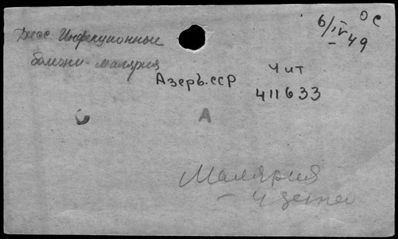 6/IV-49 ОС
Диас. Инфекционные
болезни - малярия
Азерб.ССР
Чит
411633
А
Малярия
- у детей